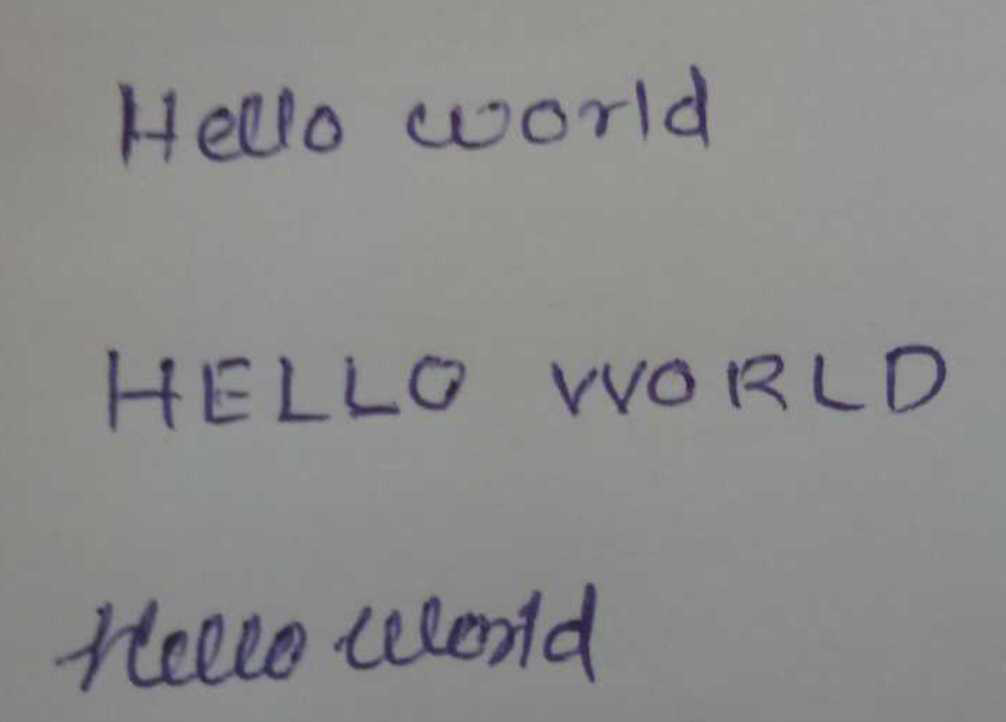 Hello world
HELLO WORLD
Hello world